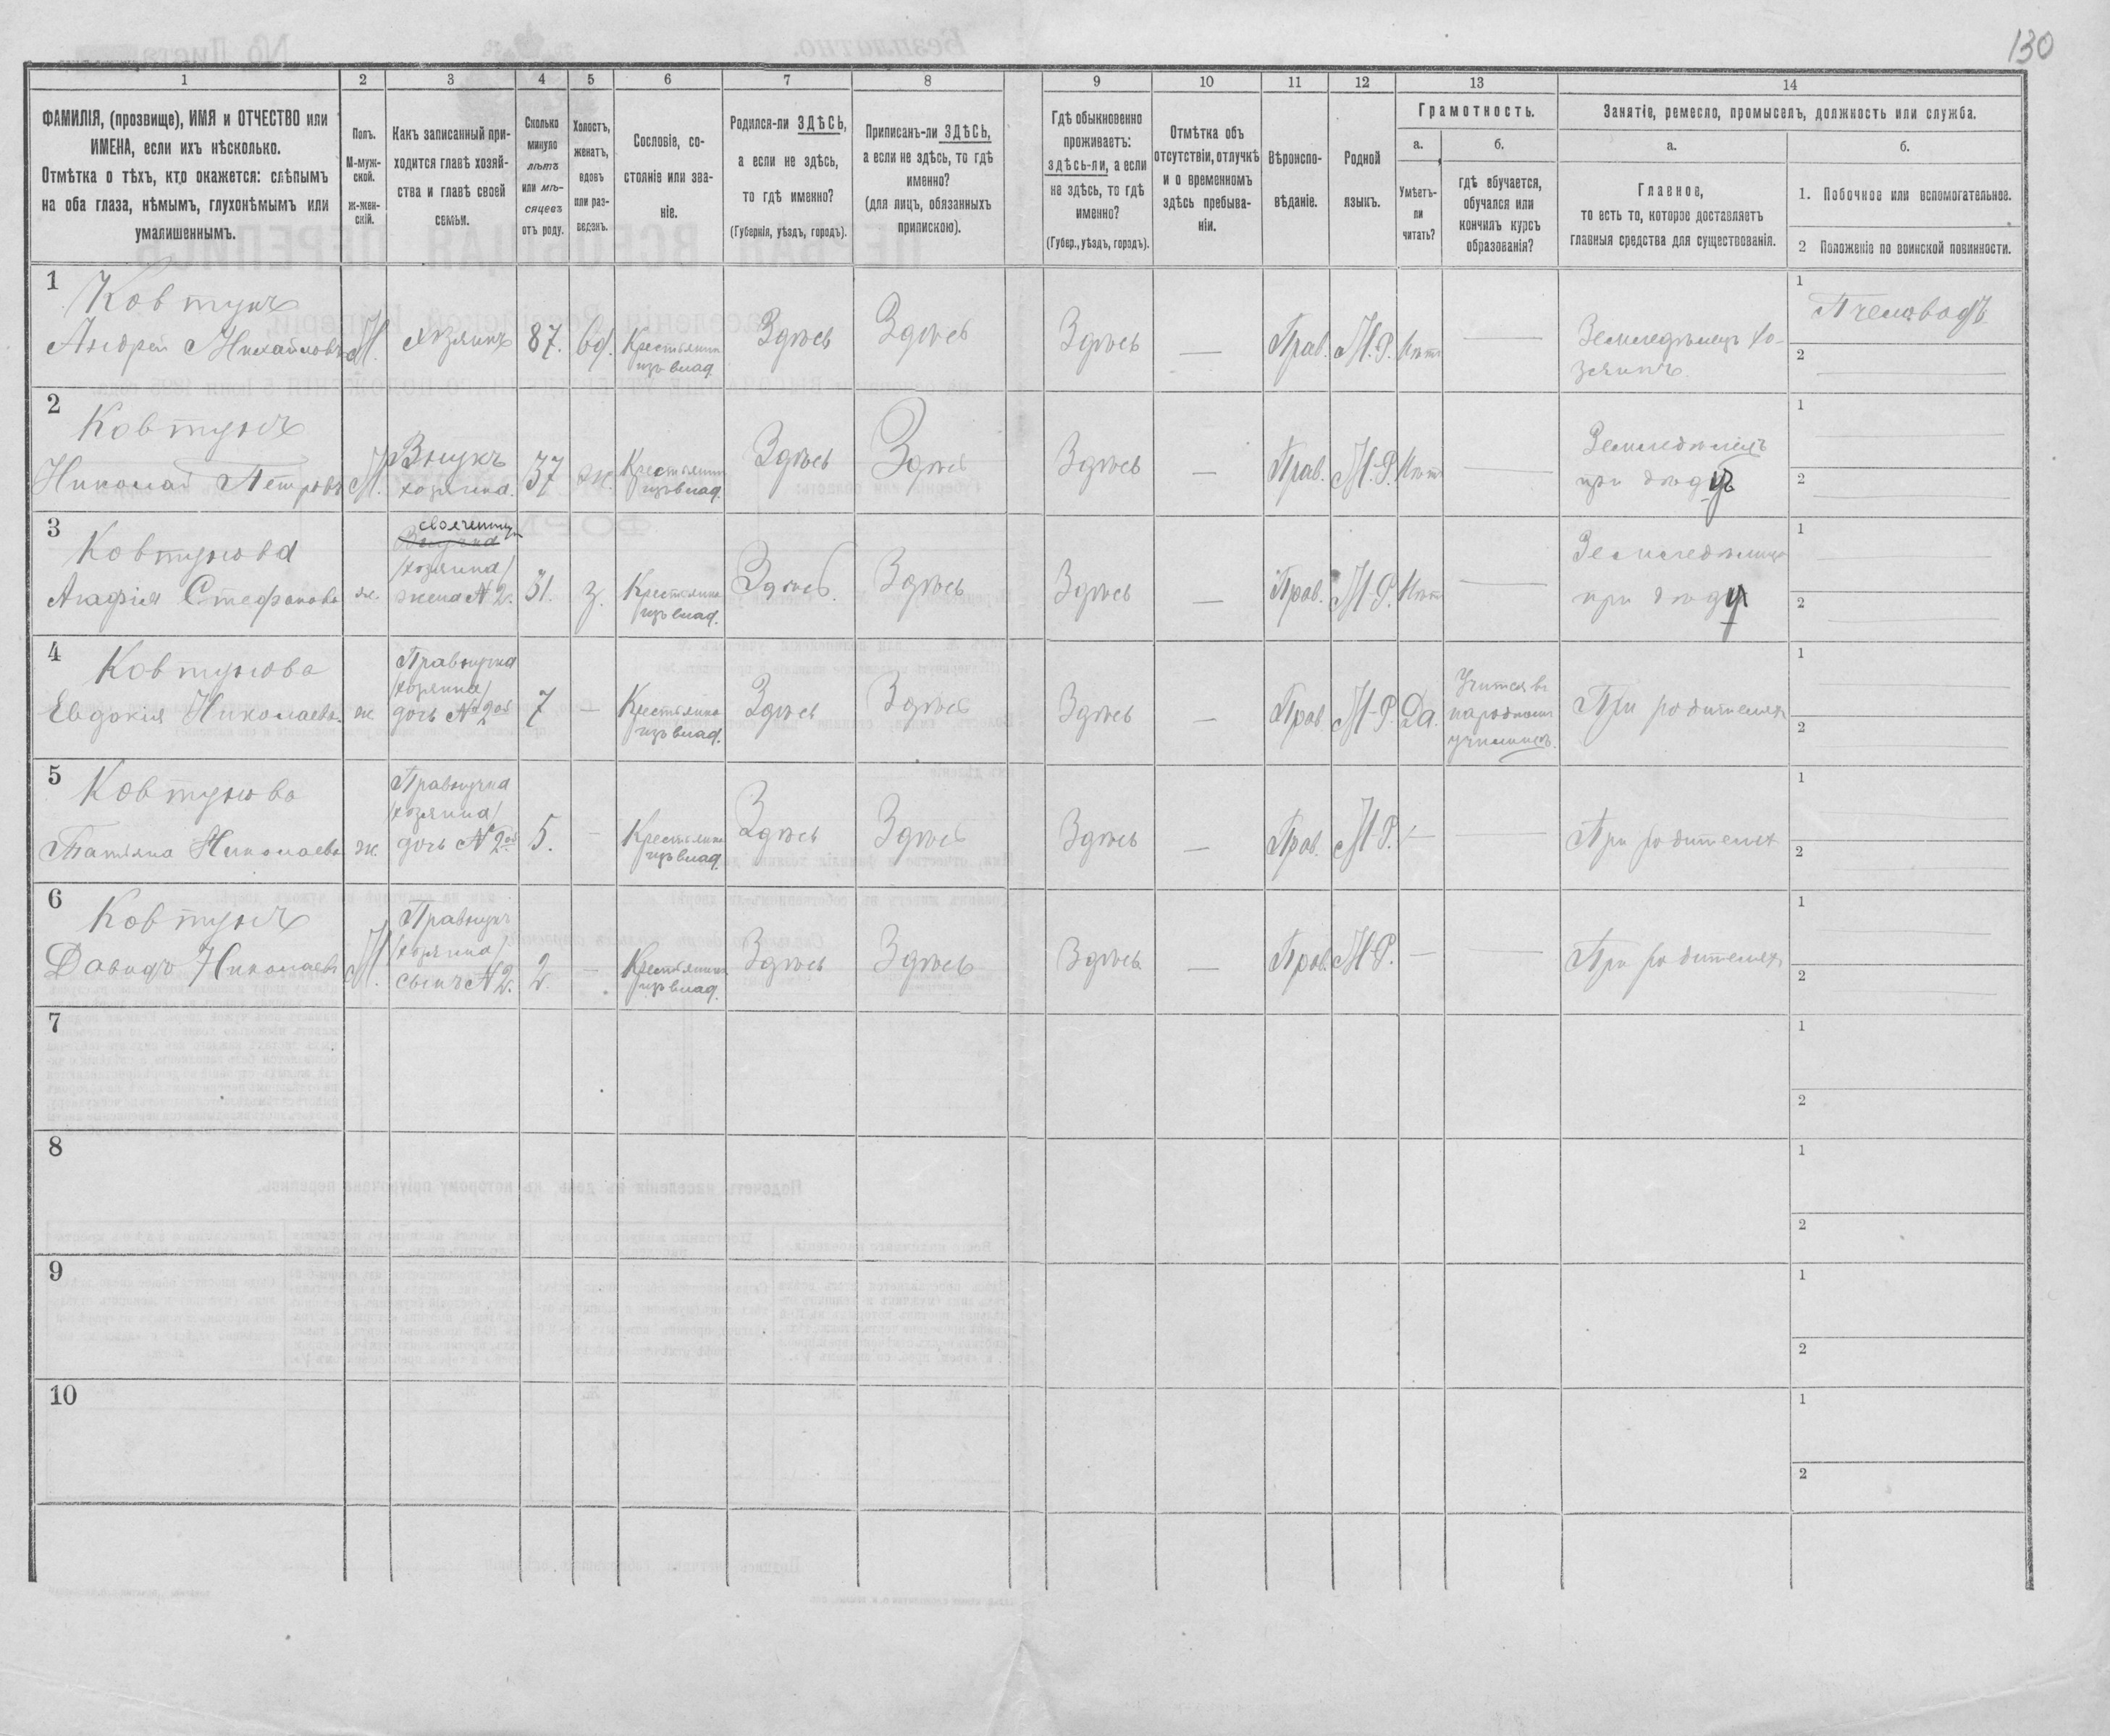 130
1
2
3
4
5
6
7
8
9
10
11
12
13
14
ФАМИЛІЯ, (прозвище), ИМЯ и ОТЧЕСТВО или
ИМЕНА, если ихъ нѣсколько.
Отмѣтка о тѣхъ, кто окажется: слѣпымъ
на оба глаза, нѣмымъ, глухонѣмымъ или
умалишеннымъ.
Полъ.
М-муж-
ской.
ж-жен-
скій.
Какъ записанный при-
ходится главѣ хозяй-
ства и главѣ своей
семьи.
Сколько
минуло
лѣтъ
или мѣ-
сяцевъ
отъ роду.
Холостъ,
женатъ,
вдовъ
или раз-
веденъ.
Сословіе, со-
стояніе или зва-
ніе.
Родился-ли ЗДѢСЬ,
а если не здѣсь,
то гдѣ именно?
(Губернія, уѣздъ, городъ).
Приписанъ-ли ЗДѢСЬ,
а если не здѣсь, то гдѣ
именно?
(для лицъ, обязанныхъ
припискою).
Гдѣ обыкновенно
проживаетъ:
здѣсь-ли, а если
не здѣсь, то гдѣ
именно?
(Губер., уѣздъ, городъ).
Отмѣтка объ
отсутствіи, отлучкѣ
и о временномъ
здѣсь пребыва-
ніи.
Вѣроиспо-
вѣданіе.
Родной
языкъ.
Грамотность.
а.
Умѣетъ-
ли
читать?
б.
гдѣ обучается,
обучался или
кончилъ курсъ
образованія?
Занятіе, ремесло, промыселъ, должность или служба.
а.
Главное,
то есть то, которое доставляетъ
главныя средства для существованія.
б.
1. Побочное или вспомогательное.
2 Положеніе по воинской повинности.
1
Ковтунъ
Андрей Михайловъ
М.
хозяинъ
87.
вд.
Крестьянин
изъ влад.
Здѣсь
Здѣсь
Здѣсь
—
Прав.
М.Р.
Нѣтъ
—
Земледѣлецъ хо-
зяинъ
1
Пчеловодъ
2
2
Ковтунъ
Николай Петровъ
М.
Внукъ
хозяина.
37
ж.
Крестьянин
изъ влад.
Здѣсь
Здѣсь
Здѣсь
—
Прав.
М.Р.
Нѣтъ
—
Земледѣлецъ
при дѣдѣ
1
2
3
Ковтунова
Агафія Стефанова
ж.
Внучка
/хозяина/
жена № 2.
31.
з.
Крестьянка
изъ влад.
Здѣсь.
Здѣсь
Здѣсь
—
Прав.
М.Р.
Нѣтъ
—
при дѣду
1
2
4
Ковтунова
Евдокія Николаева.
ж
Правнучка
/хозяина/
дочь № 2ой
7
—
Крестьянка
изъ влад.
Здѣсь
Здѣсь
Здѣсь
—
Прав
М-Р.
Да.
Учится въ
народномъ
училищѣ.
При родителяхъ
1
2
5
Ковтунова
Татьяна Николаева
ж.
Правнучка
/хозяина/
дочь № 2ой
5.
—
Крестьянка
изъ влад.
Здѣсь
Здѣсь
Здѣсь
—
Прав.
М-Р.
—
—
При родителях
1
2
6
Ковтунъ
Давидъ Николаевъ
М.
Правнукъ
/хозяина/
сынъ № 2.
2.
—
Крестьянин
изъ влад.
Здѣсь
Здѣсь
Здѣсь
—
Прав.
М-Р.
—
—
При родителях
1
2
7
1
2
8
1
2
9
1
2
10
1
2